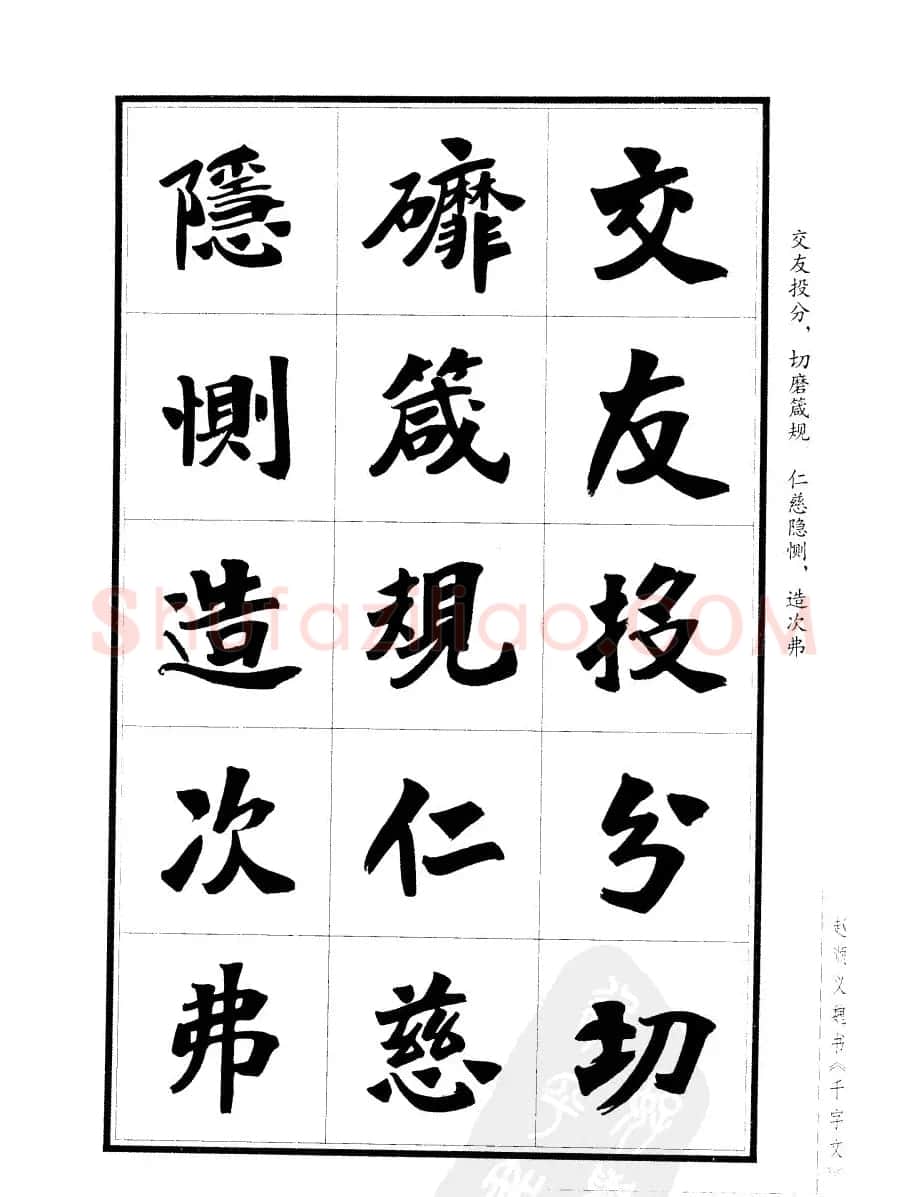 交友投分切
礳箴規仁慈
隱惻造次弗
交友投分，切磨箴规　仁慈隐恻，造次弗
Shufaziliao.COM
书《千字文